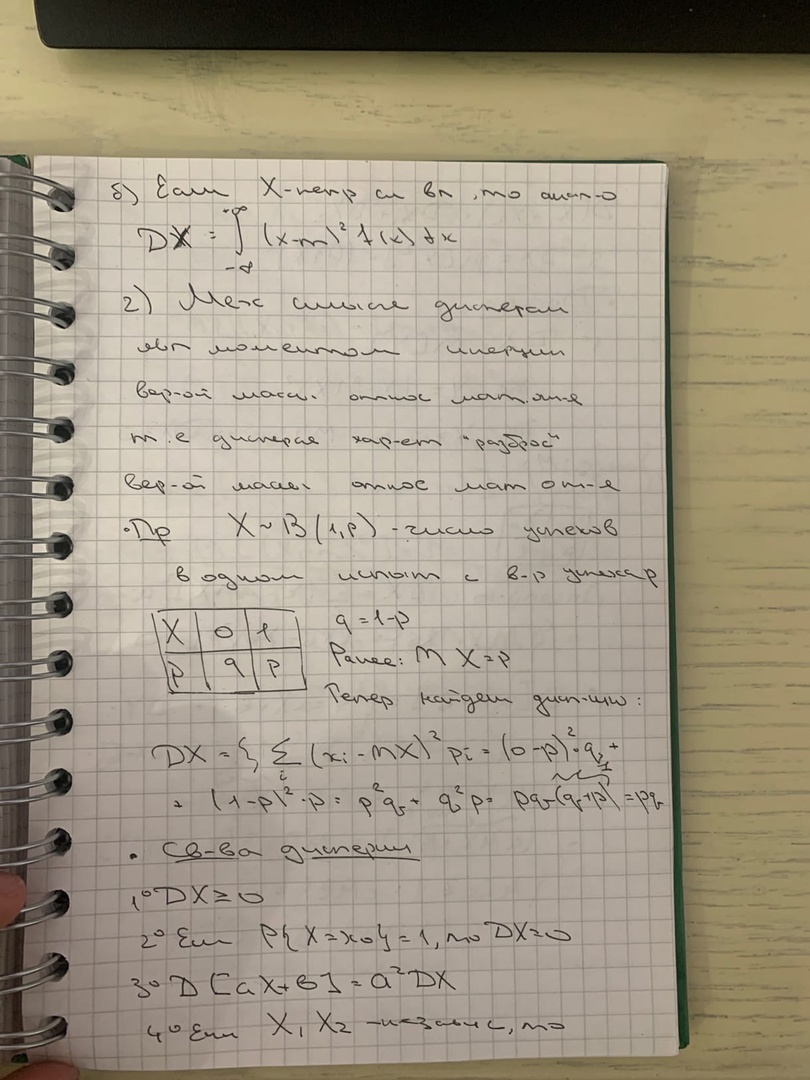 б) Если X-непр сл вл, то анал-о
DX = ∫ (x-m)² f(x) dx
+∞
-∞
2) Мех смысле дисперсия
явл моментом инерции
вер-ой массы. относ мат.ож-я
т.е дисперсия хар-ет "разброс"
вер-ой массы относ мат ож-я
• Пр X ~ B(1,p) - число успехов
в одном испыт с в-р успеха p
X 0 1 q = 1-p
p q p Ранее: M X = p
Тепер найдем дисп-ию:
DX = { Σ (xi - MX)² pi = (0-p)²·q +
i 1
+ (1-p)²·p = p²q + q²p = pq(q+p) = pq
• Св-ва дисперсии
1° DX ≥ 0
2° Если P{X=x0} = 1, то DX=0
3° D[aX+b] = a²DX
4° Если X1 X2 - независ, то